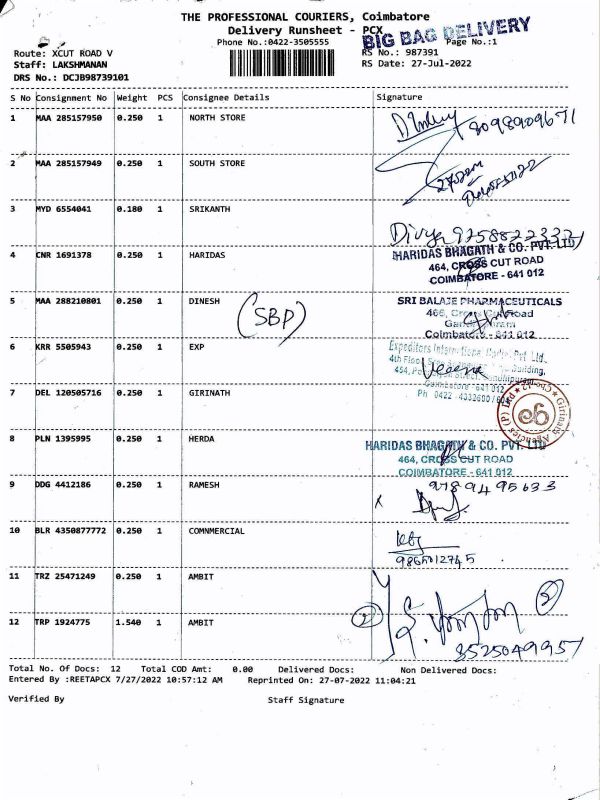 THE PROFESSIONAL COURIERS, Coimbatore
Delivery Runsheet - PCX
BIG BAG DELIVERY
Phone No.:0422-3505555
Page No.:1
Route: XCUT ROAD V
RS No.: 987391
Staff: LAKSHMANAN
RS Date: 27-Jul-2022
DRS No.: DCJB98739101
S No Consignment No Weight PCS Consignee Details Signature
1 MAA 285157950 0.250 1 NORTH STORE 8098909671
2 MAA 285157949 0.250 1 SOUTH STORE
3 MYD 6554041 0.180 1 SRIKANTH
Divya
4 CNR 1691378 0.250 1 HARIDAS
HARIDAS BHAGATH & CO. PVT. LTD
464, CROSS CUT ROAD
COIMBATORE - 641 012
5 MAA 288210801 0.250 1 DINESH (SBP)
SRI BALAJE PHARMACEUTICALS
466, Cross Cut Road
Gandhipuram
Coimbatore - 641 012
6 KRR 5505943 0.250 1 EXP
Expeditors International
4th Floor
Building,
454,
Gandhipuram
Coimbatore - 641 012
Veena
7 DEL 120505716 0.250 1 GIRINATH
Girinath Agencies (P) Ltd
8 PLN 1395995 0.250 1 HERDA
HARIDAS BHAGATH & CO. PVT. LTD
464, CROSS CUT ROAD
COIMBATORE - 641 012
9 DDG 4412186 0.250 1 RAMESH 9789495633
x
10 BLR 4350877772 0.250 1 COMNMERCIAL
9865012745
11 TRZ 25471249 0.250 1 AMBIT
12 TRP 1924775 1.540 1 AMBIT 2 2
8525049957
Total No. Of Docs: 12 Total COD Amt: 0.00 Delivered Docs: Non Delivered Docs:
Entered By :REETAPCX 7/27/2022 10:57:12 AM Reprinted On: 27-07-2022 11:04:21
Verified By Staff Signature